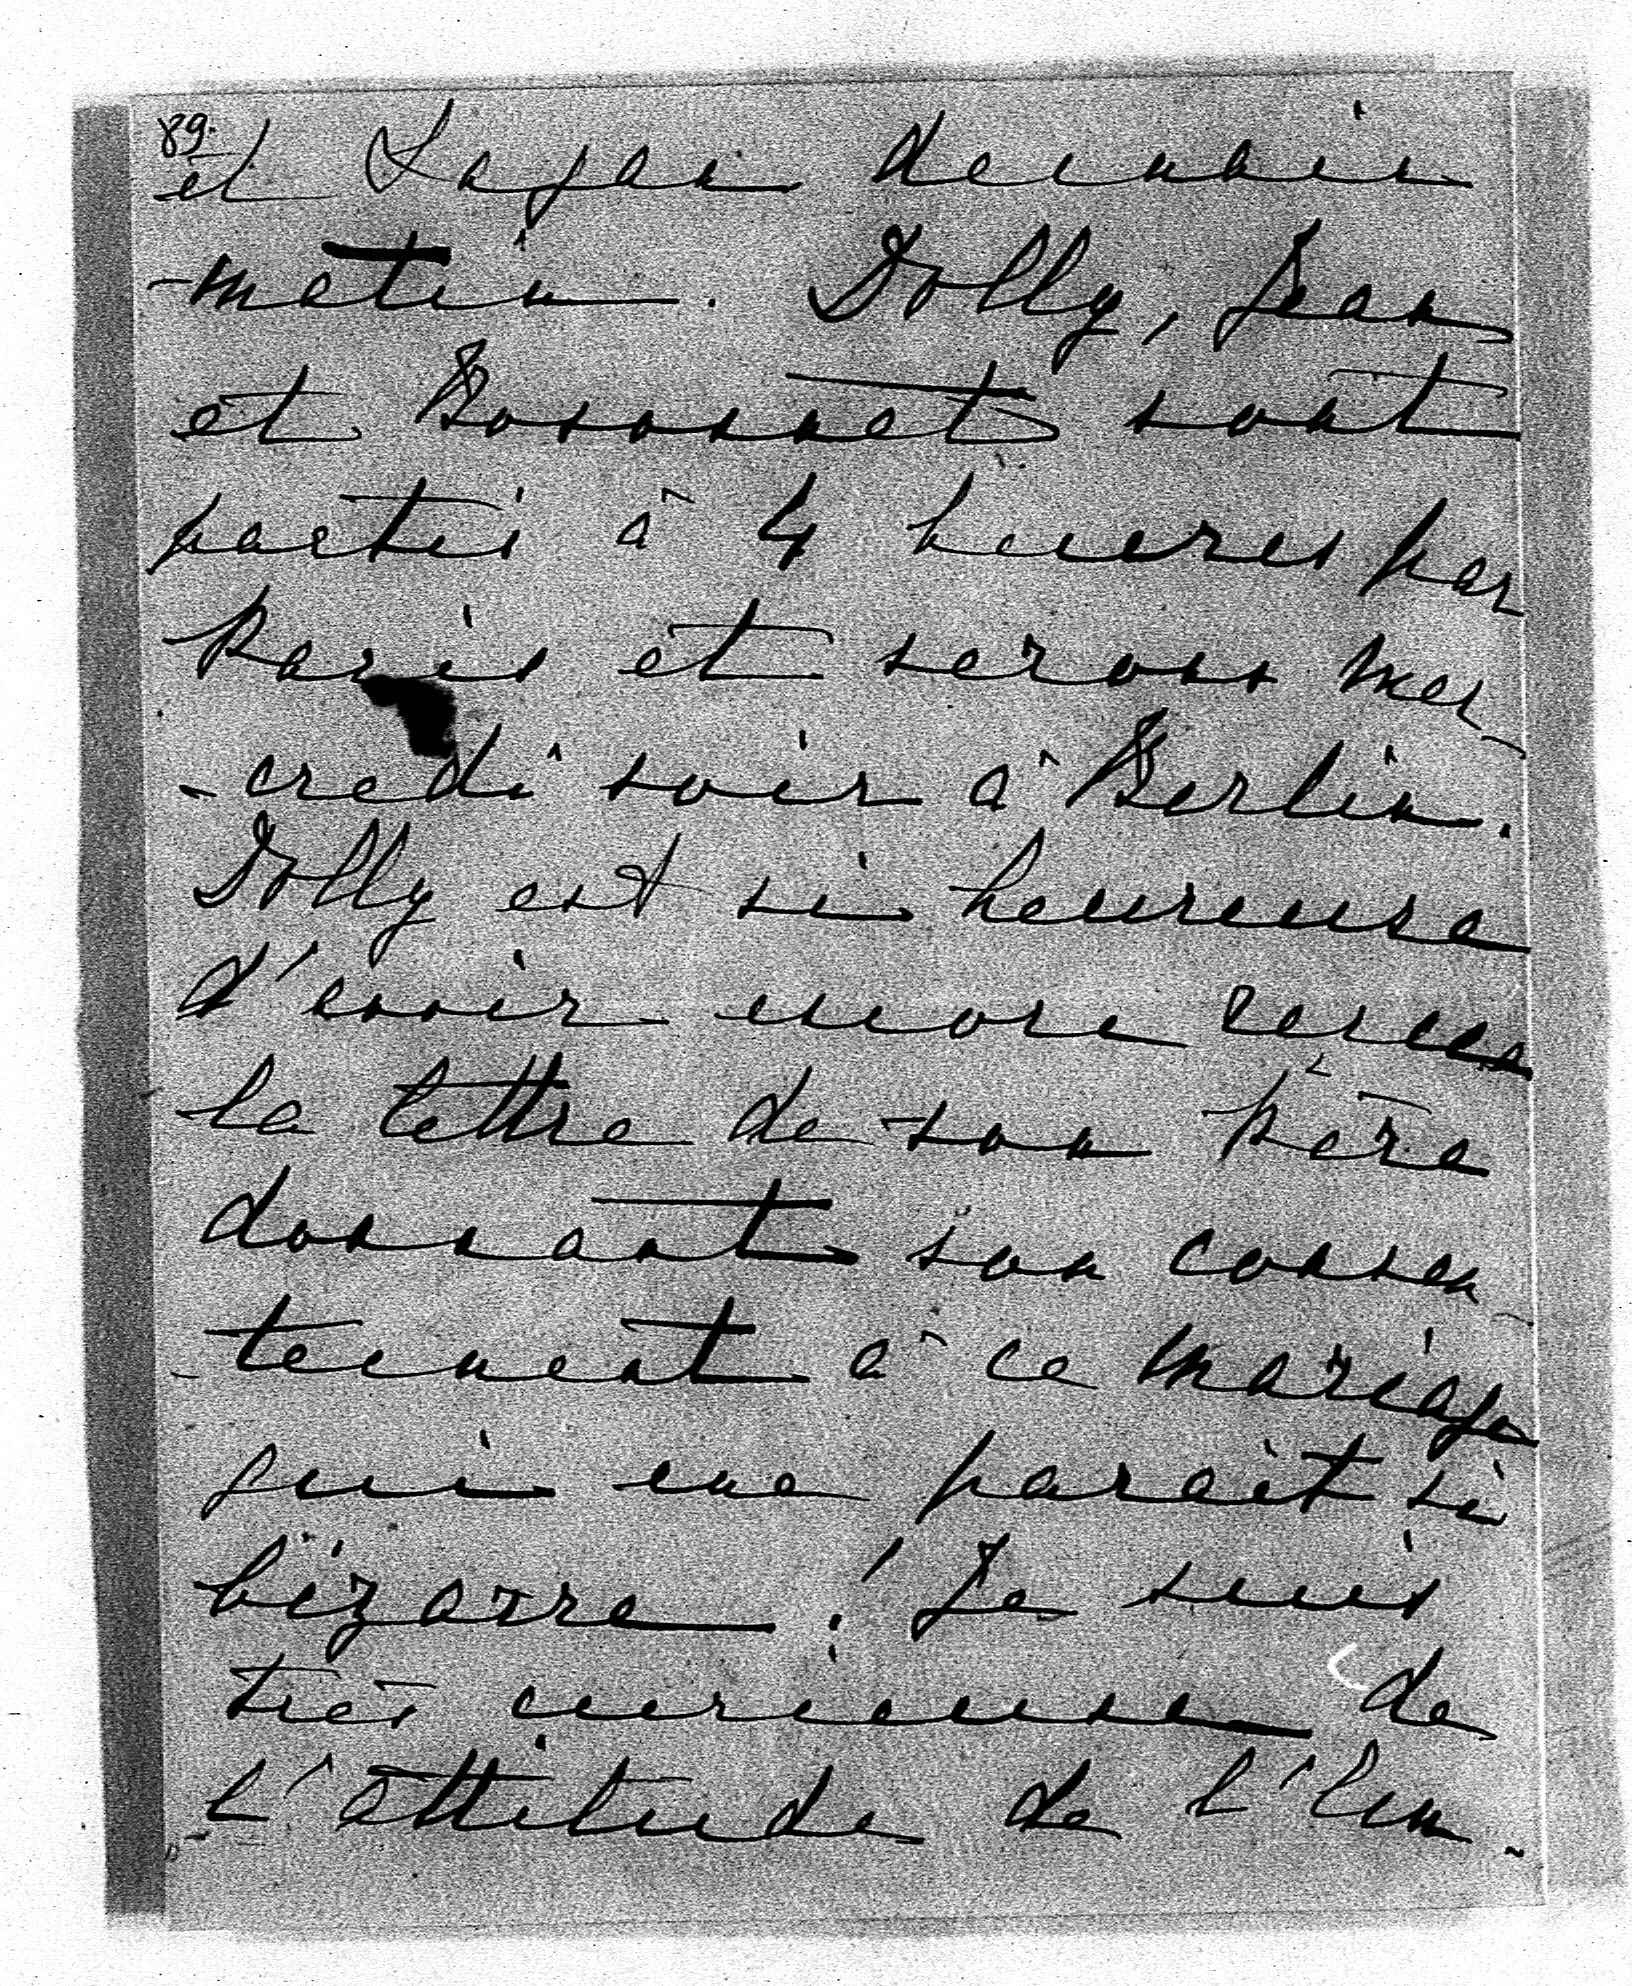 89.
et Lagan demain
matin. Dolly, Jean
et Bosonnet sont
partis à 4 heures par
Paris et seront mer-
-credi soir à Berlin.
Dolly est si heureuse
d'avoir encore reçue
la lettre de son Père
donnant son consen-
-tement à ce mariage
qui me parait si
bizarre! Je suis
très curieuse de
l'attitude de l'Em-